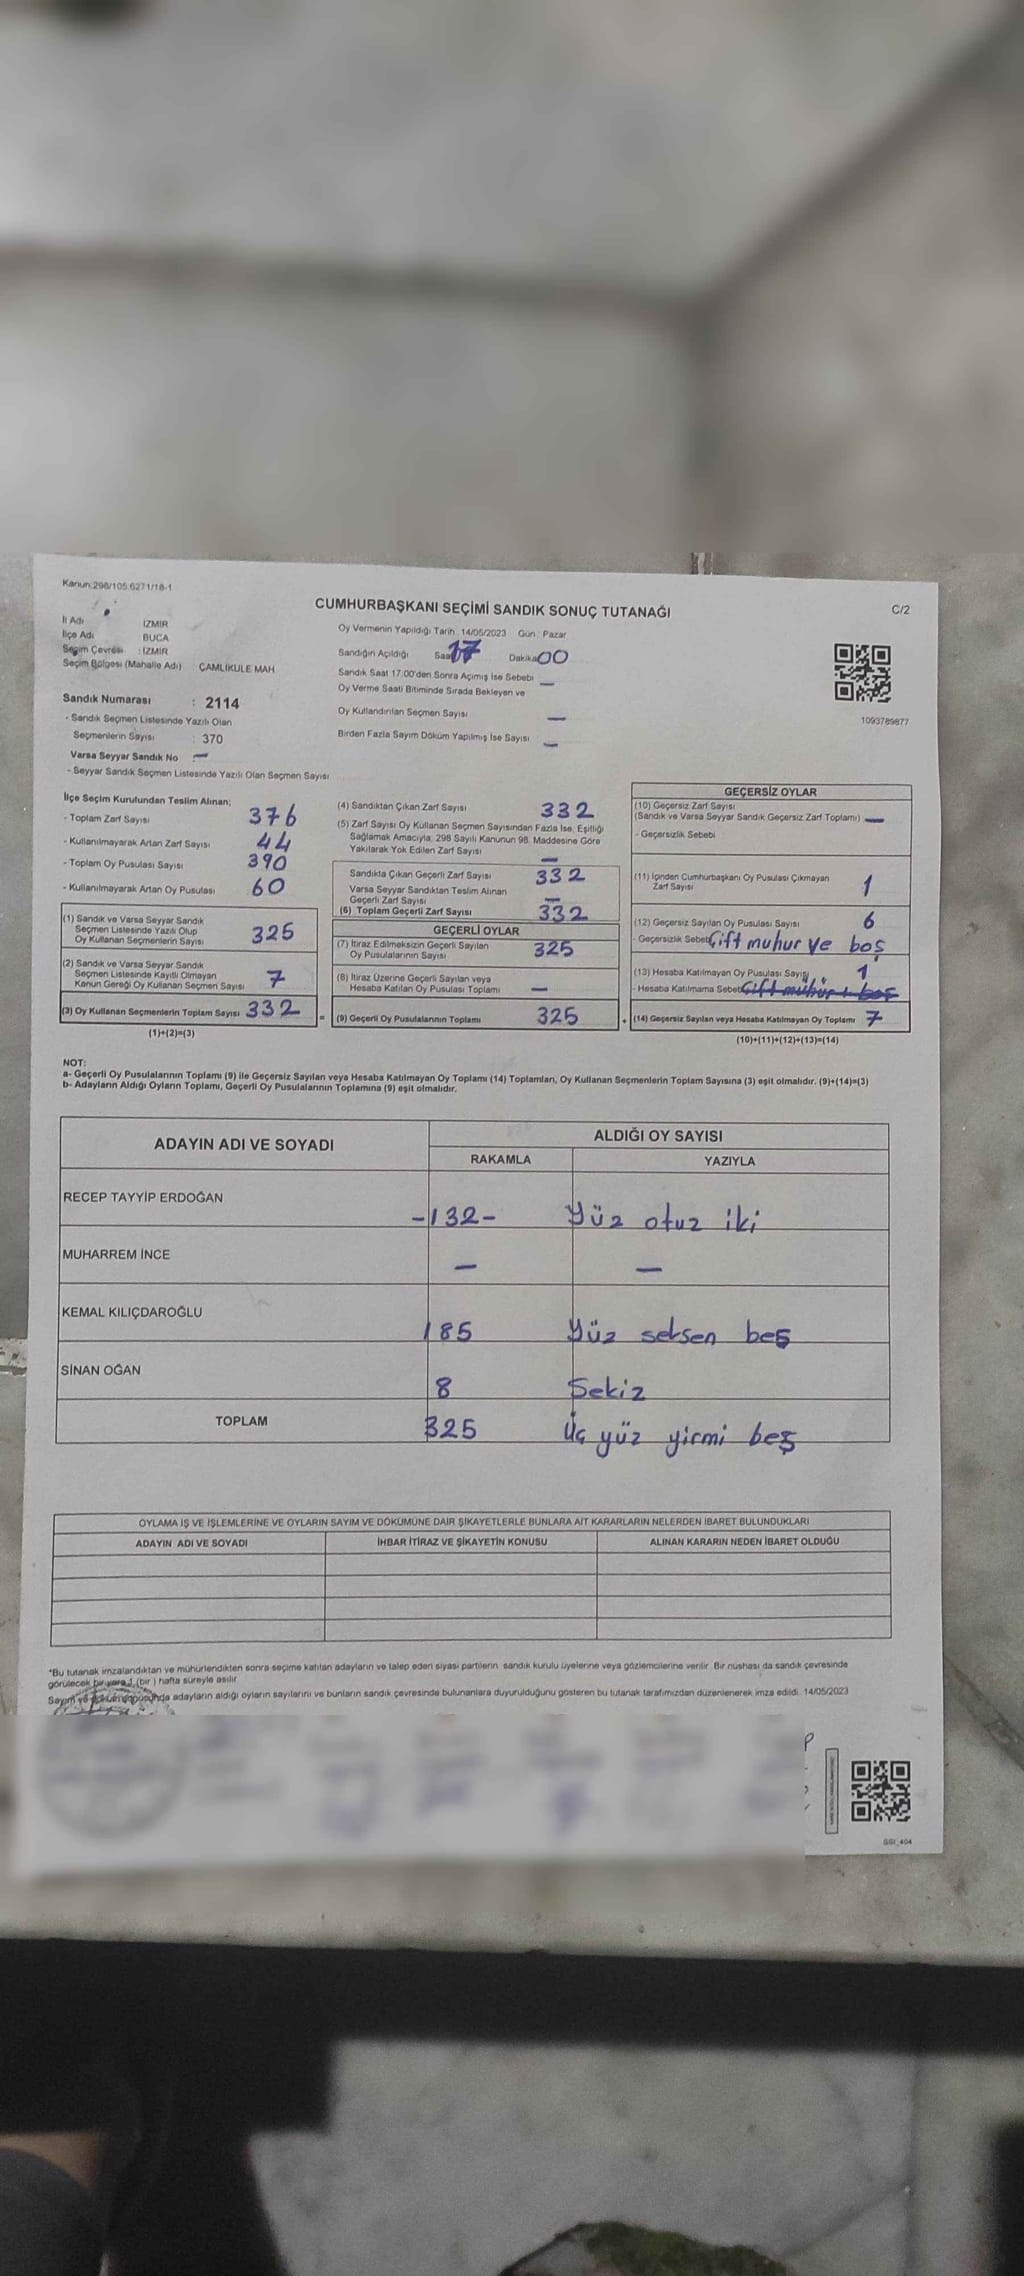 Kanun:298/105 6271/18-1
CUMHURBAŞKANI SEÇİMİ SANDIK SONUÇ TUTANAĞI
C/2
İl Adı İZMİR
İlçe Adı BUCA
Seçim Çevresi : İZMİR
Seçim Bölgesi (Mahalle Adı) ÇAMLIKULE MAH.
Sandık Numarası : 2114
- Sandık Seçmen Listesinde Yazılı Olan
Seçmenlerin Sayısı : 370
Varsa Seyyar Sandık No —
- Seyyar Sandık Seçmen Listesinde Yazılı Olan Seçmen Sayısı
Oy Vermenin Yapıldığı Tarih 14/05/2023 Gün : Pazar
Sandığın Açıldığı Saat 17 Dakika 00
Sandık Saat 17:00'den Sonra Açımış İse Sebebi —
Oy Verme Saati Bitiminde Sırada Bekleyen ve
Oy Kullandırılan Seçmen Sayısı —
Birden Fazla Sayım Döküm Yapılmış İse Sayısı —
1093789877
İlçe Seçim Kurulundan Teslim Alınan;
- Toplam Zarf Sayısı 376
- Kullanılmayarak Artan Zarf Sayısı 44
- Toplam Oy Pusulası Sayısı 390
- Kullanılmayarak Artan Oy Pusulası 60
(1) Sandık ve Varsa Seyyar Sandık
Seçmen Listesinde Yazılı Olup
Oy Kullanan Seçmenlerin Sayısı 325
(2) Sandık ve Varsa Seyyar Sandık
Seçmen Listesinde Kayıtlı Olmayan
Kanun Gereği Oy Kullanan Seçmen Sayısı 7
(3) Oy Kullanan Seçmenlerin Toplam Sayısı 332
(1)+(2)=(3)
(4) Sandıktan Çıkan Zarf Sayısı 332
(5) Zarf Sayısı Oy Kullanan Seçmen Sayısından Fazla İse, Eşitliği
Sağlamak Amacıyla, 298 Sayılı Kanunun 98. Maddesine Göre
Yakılarak Yok Edilen Zarf Sayısı —
Sandıkta Çıkan Geçerli Zarf Sayısı 332
Varsa Seyyar Sandıktan Teslim Alınan
Geçerli Zarf Sayısı —
(6) Toplam Geçerli Zarf Sayısı 332
GEÇERLİ OYLAR
(7) İtiraz Edilmeksizin Geçerli Sayılan
Oy Pusulalarının Sayısı 325
(8) İtiraz Üzerine Geçerli Sayılan veya
Hesaba Katılan Oy Pusulası Toplamı —
= (9) Geçerli Oy Pusulalarının Toplamı 325 +
GEÇERSİZ OYLAR
(10) Geçersiz Zarf Sayısı
(Sandık ve Varsa Seyyar Sandık Geçersiz Zarf Toplamı) —
- Geçersizlik Sebebi
(11) İçinden Cumhurbaşkanı Oy Pusulası Çıkmayan
Zarf Sayısı 1
(12) Geçersiz Sayılan Oy Pusulası Sayısı 6
- Geçersizlik Sebebi Çift muhur ve boş
(13) Hesaba Katılmayan Oy Pusulası Sayısı 1
- Hesaba Katılmama Sebebi Çift mühür + boş
(14) Geçersiz Sayılan veya Hesaba Katılmayan Oy Toplamı 7
(10)+(11)+(12)+(13)=(14)
NOT:
a- Geçerli Oy Pusulalarının Toplamı (9) ile Geçersiz Sayılan veya Hesaba Katılmayan Oy Toplamı (14) Toplamları, Oy Kullanan Seçmenlerin Toplam Sayısına (3) eşit olmalıdır. (9)+(14)=(3)
b- Adayların Aldığı Oyların Toplamı, Geçerli Oy Pusulalarının Toplamına (9) eşit olmalıdır.
ADAYIN ADI VE SOYADI ALDIĞI OY SAYISI
RAKAMLA YAZIYLA
RECEP TAYYİP ERDOĞAN -132- Yüz otuz iki
MUHARREM İNCE — —
KEMAL KILIÇDAROĞLU 185 Yüz seksen beş
SİNAN OĞAN 8 Sekiz
TOPLAM 325 Üç yüz yirmi beş
OYLAMA İŞ VE İŞLEMLERİNE VE OYLARIN SAYIM VE DÖKÜMÜNE DAİR ŞİKAYETLERLE BUNLARA AİT KARARLARIN NELERDEN İBARET BULUNDUKLARI
ADAYIN ADI VE SOYADI İHBAR İTİRAZ VE ŞİKAYETİN KONUSU ALINAN KARARIN NEDEN İBARET OLDUĞU
*Bu tutanak imzalandıktan ve mühürlendikten sonra seçime katılan adayların ve talep eden siyasi partilerin sandık kurulu üyelerine veya gözlemcilerine verilir. Bir nüshası da sandık çevresinde
görülecek bir yere 1 (bir) hafta süreyle asılır.
Sayım ve adayların aldığı oyların sayılarını ve bunların sandık çevresinde bulunanlara duyurulduğunu gösteren bu tutanak tarafımızdan düzenlenerek imza edildi. 14/05/2023
SSI_404